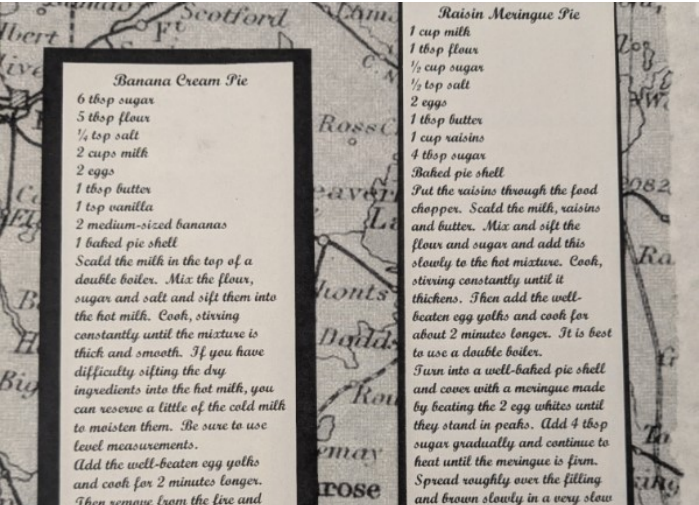 Banana Cream Pie
6 tbsp sugar
5 tbsp flour
¼ tsp salt
2 cups milk
2 eggs
1 tbsp butter
1 tsp vanilla
2 medium-sized bananas
1 baked pie shell
Scald the milk in the top of a
double boiler. Mix the flour,
sugar and salt and sift them into
the hot milk. Cook, stirring
constantly until the mixture is
thick and smooth. If you have
difficulty sifting the dry
ingredients into the hot milk, you
can reserve a little of the cold milk
to moisten them. Be sure to use
level measurements.
Add the well-beaten egg yolks
and cook for 2 minutes longer.
Then remove from the fire and
Raisin Meringue Pie
1 cup milk
1 tbsp flour
½ cup sugar
½ tsp salt
2 eggs
1 tbsp butter
1 cup raisins
4 tbsp sugar
Baked pie shell
Put the raisins through the food
chopper. Scald the milk, raisins
and butter. Mix and sift the
flour and sugar and add this
slowly to the hot mixture. Cook,
stirring constantly until it
thickens. Then add the well-
beaten egg yolks and cook for
about 2 minutes longer. It is best
to use a double boiler.
Turn into a well-baked pie shell
and cover with a meringue made
by beating the 2 egg whites until
they stand in peaks. Add 4 tbsp
sugar gradually and continue to
heat until the meringue is firm.
Spread roughly over the filling
and brown slowly in a very slow
Scotford
Ross C
honts
Dodds
rose